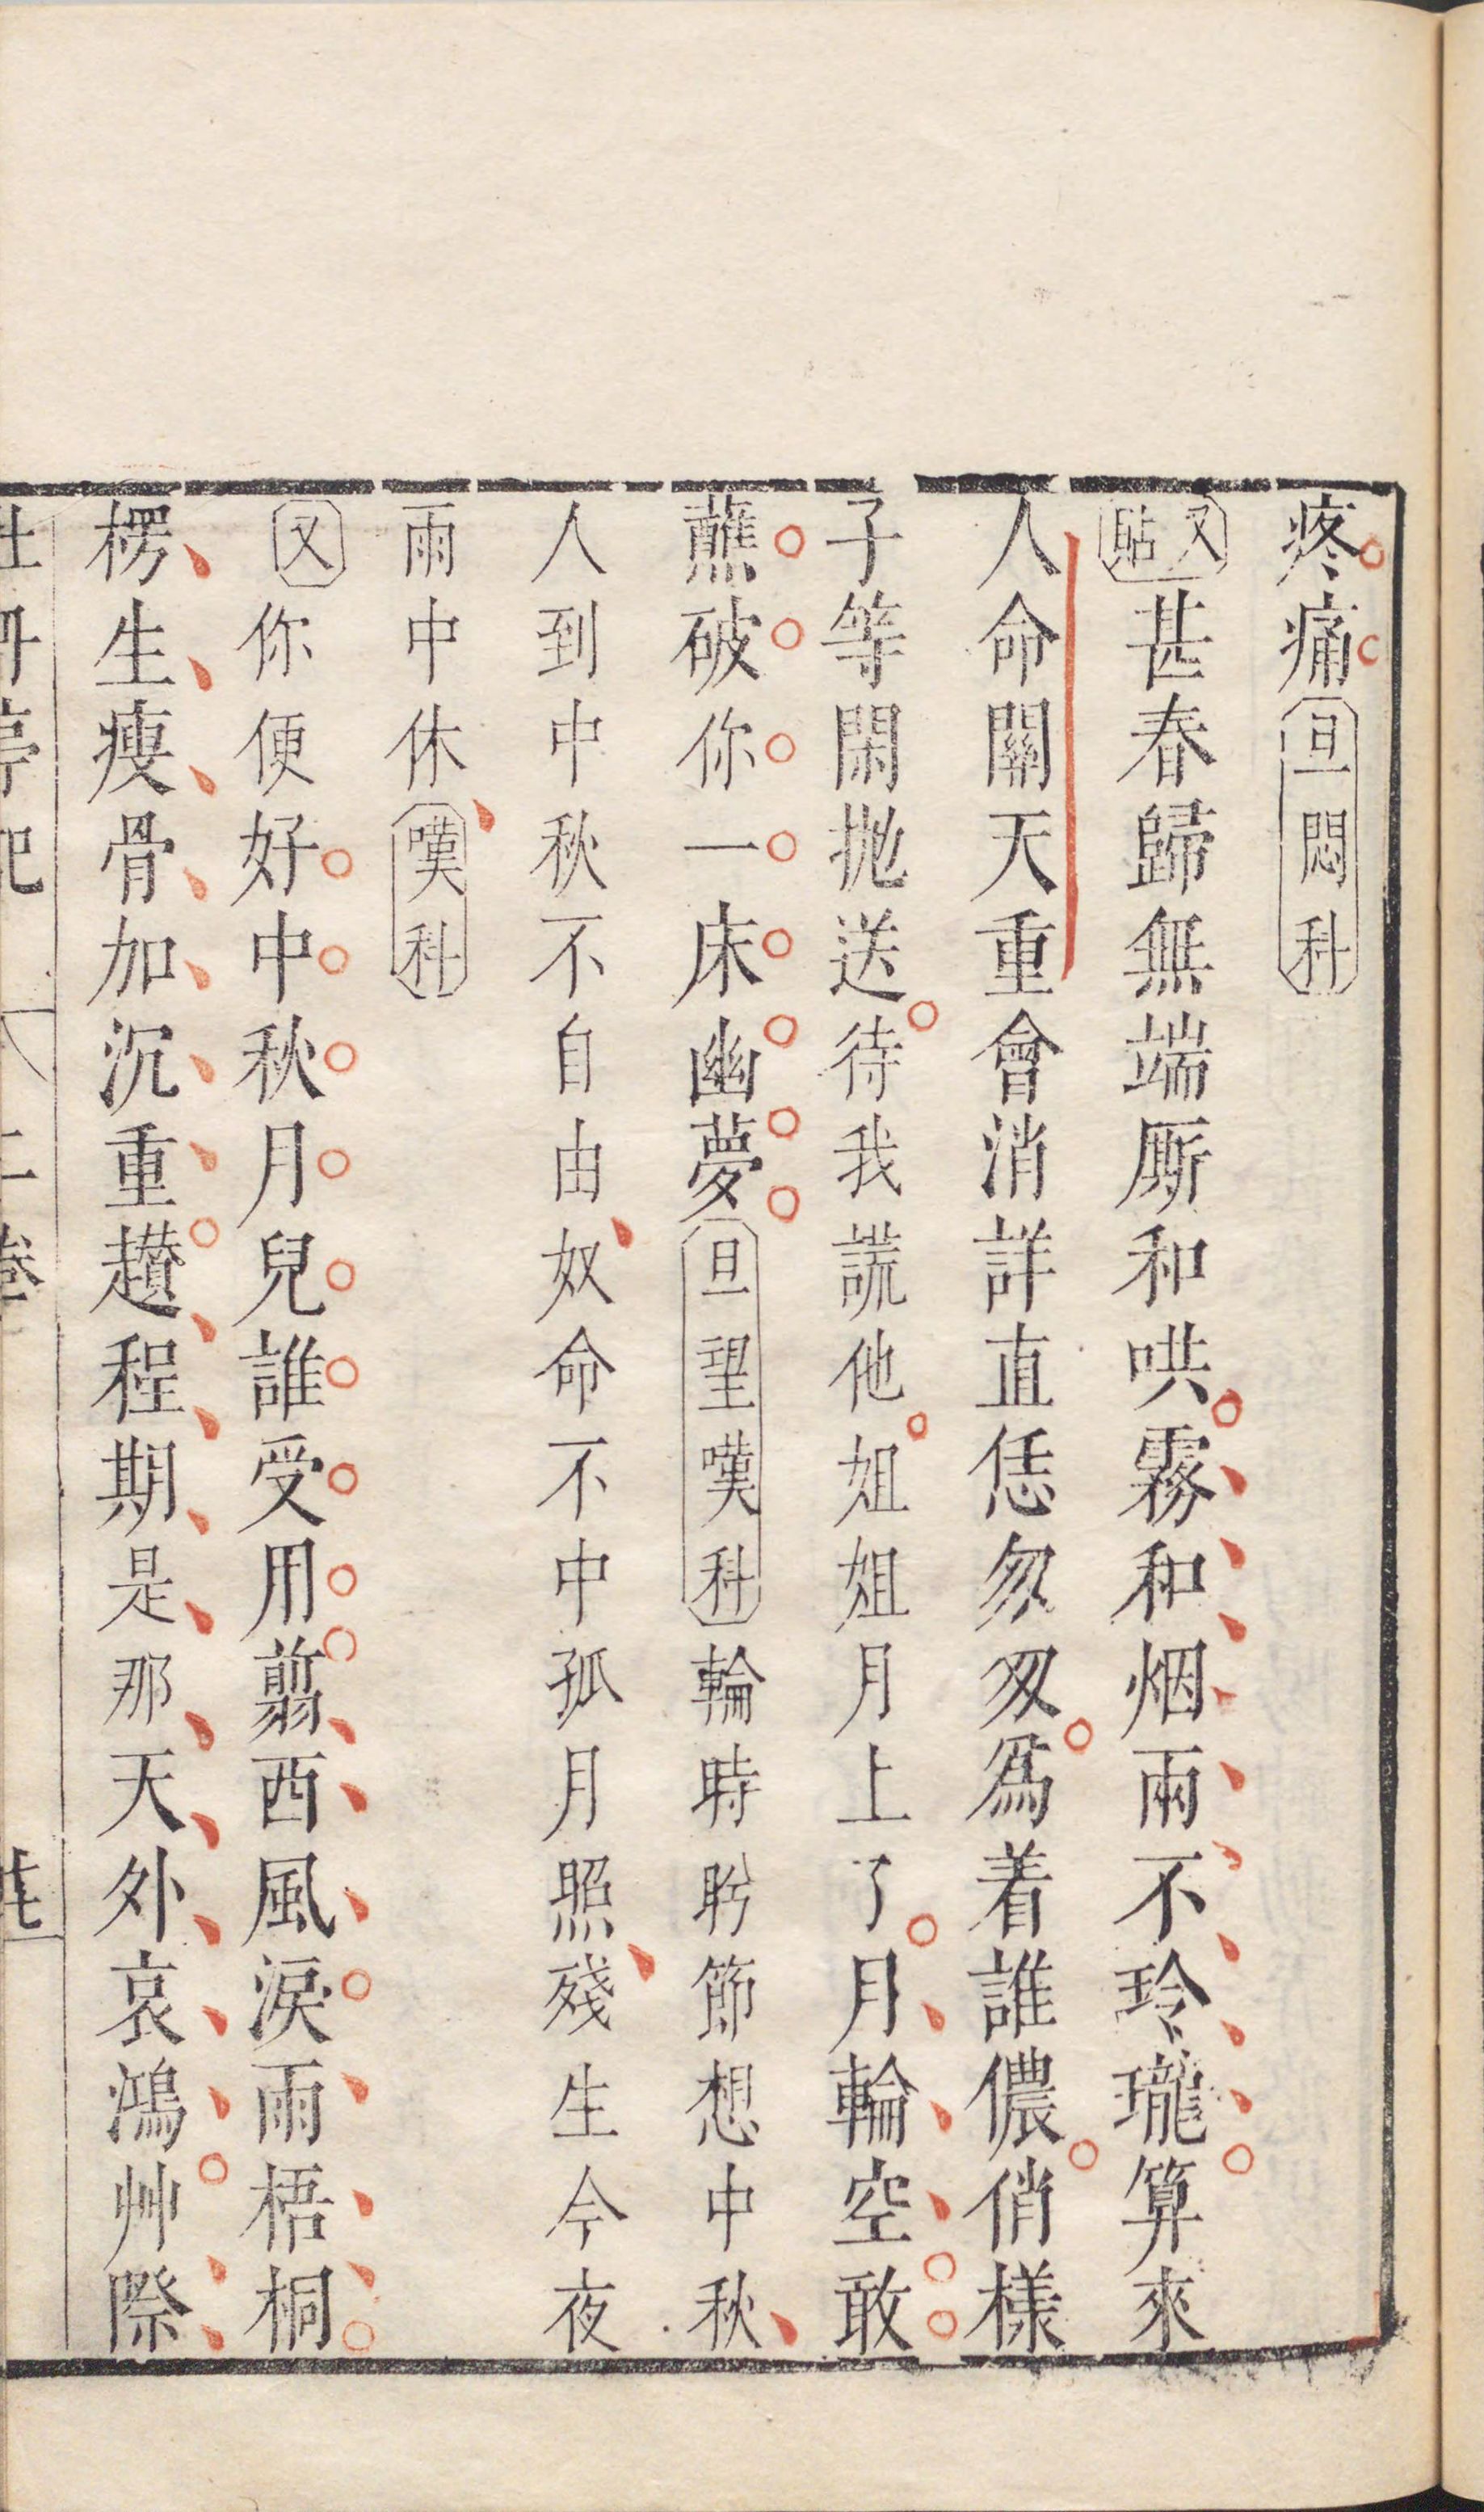 疼痛旦悶科
又貼甚春歸無端厮和哄霧和烟兩不玲瓏算來
人命關天重會消詳直恁匆匆爲着誰儂俏樣
子等閑抛送待我謊他姐姐月上了月輪空敢
蘸破你一床幽夢旦望嘆科輪時盻節想中秋
人到中秋不自由奴命不中孤月照殘生今夜
雨中休嘆科
又你便好中秋月兒誰受用翦西風淚雨梧桐
楞生瘦骨加沉重趲程期是那天外哀鴻艸際
牡丹亭記 上卷